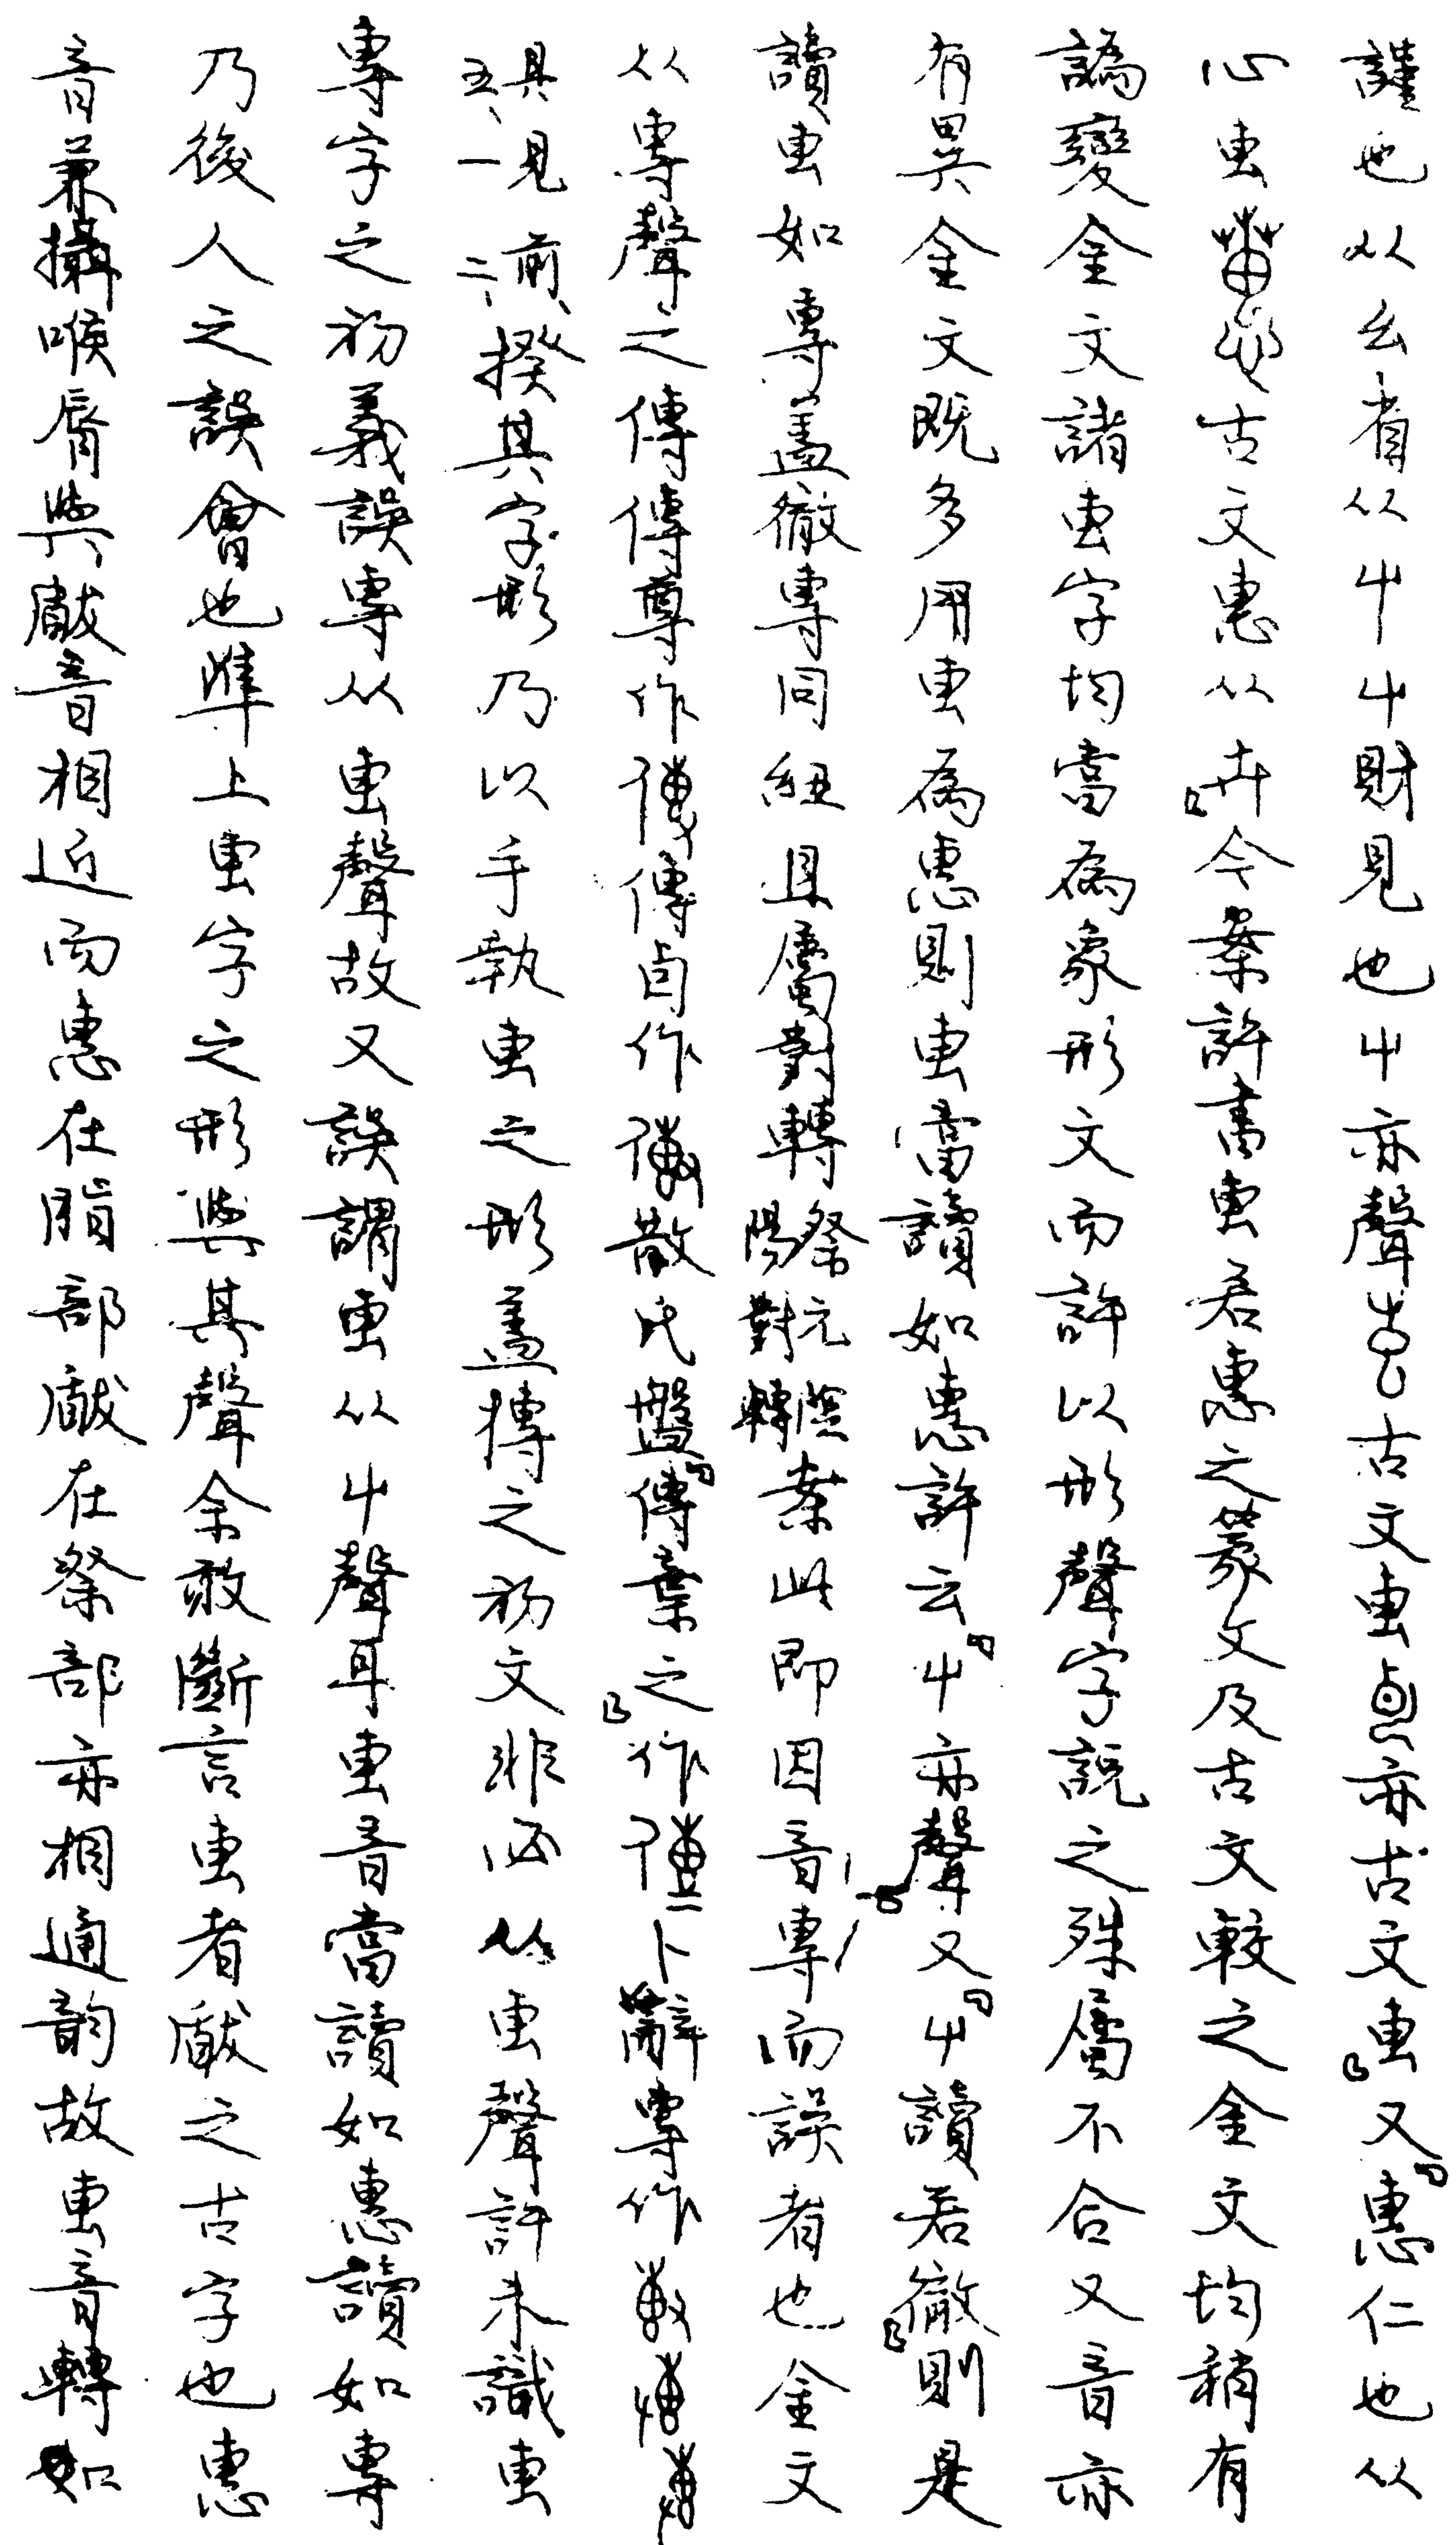 謹也从幺省从屮屮財見也屮亦聲古文叀亦古文叀又惠仁也从
心叀古文惠从卉今案許書叀若惠之篆文及古文較之金文均稍有
譌變金文諸叀字均當為象形文而許以形聲字說之殊屬不合又音亦
有異金文既多用叀為惠則叀當讀如惠許云屮亦聲又屮讀若徹則是
讀叀如專蓋徹專同紐且屬對轉祭元陰陽對轉案此即因音專而誤者也金文
从專聲之傳傳尊作傳卣作散氏盤傳棄之作卜辭專作
具見前二、五、一揆其字形乃以手執叀之形蓋摶之初文非必从叀聲許未識叀
專字之初義誤專从叀聲故又誤謂叀从屮聲耳叀音當讀如惠讀如專
乃後人之誤會也準上叀字之形與其聲余敢斷言叀者瞂之古字也惠
音兼攝喉脣與瞂音相近而惠在脂部瞂在祭部亦相通韵故叀音轉如